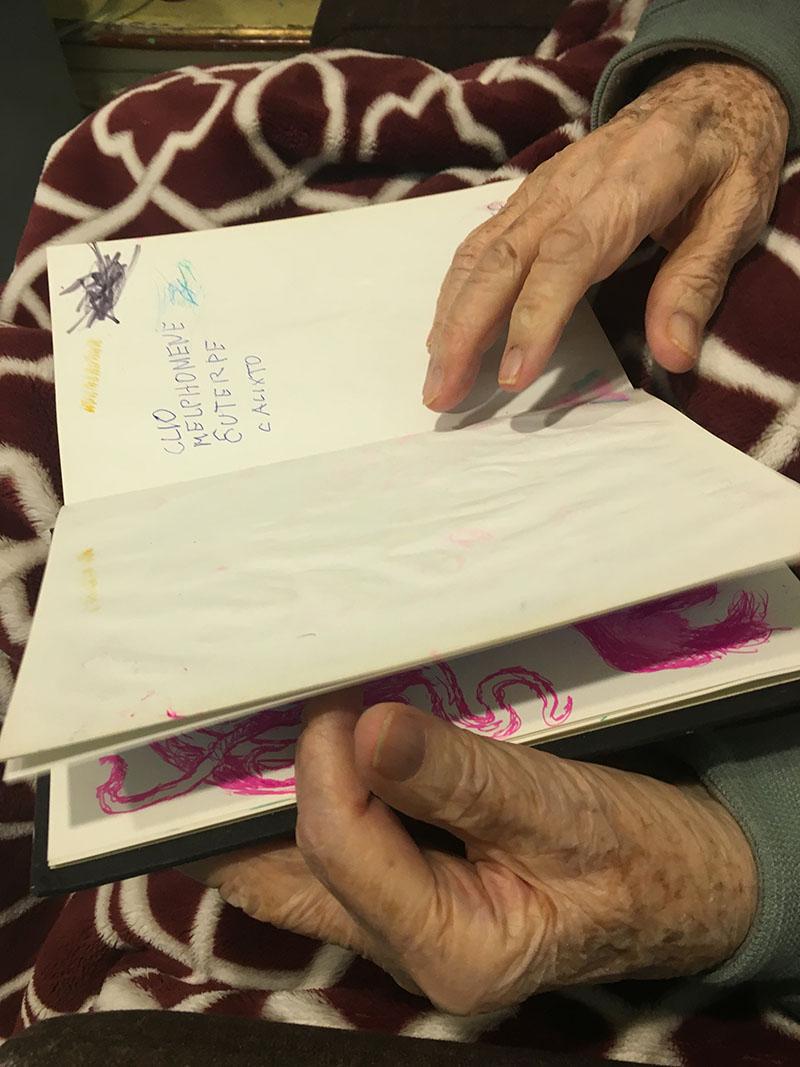 CLIO
MELPHOMENE
EUTERPE
CALIXTO